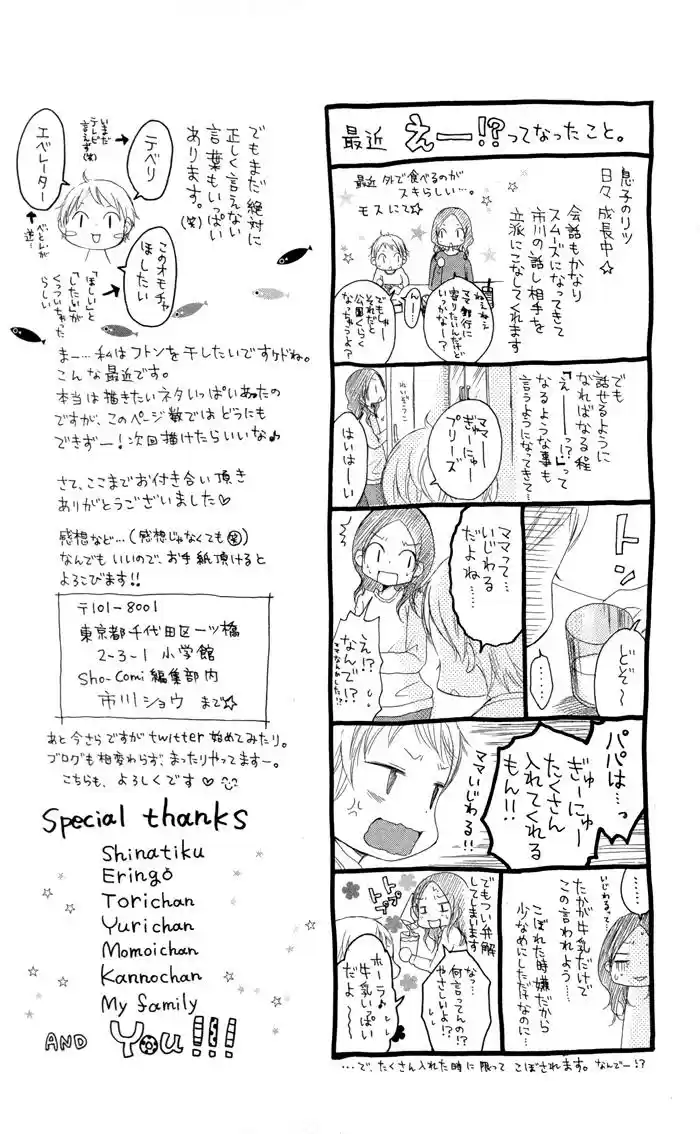 最近 えー!?ってなったこと。
息子のリツ
日々 成長中☆
会話もかなり
スムーズになってきて
市川の話し相手を
立派にこなしてくれます
最近 外で食べるのが
スキらしい…。
モスにて☆
ねぇねぇ
ママ銀行に
寄りたいんだけど
いっかなー?
んー…
でもしゅー
それだと
公園くらく
なっちゃうよ?
でも
話せるように
なればなる程
「えーーっ!?」って
なるような事も
言うようになってきて…
れいぞうこ
ママー
ぎゅーにゅー
プリーズ
はいはーい
トン
どぞ〜
……
ママって…
いじわる
だよね…
え!?
なんで!?
ママなんかした!?
パパは…っ
ぎゅーにゅー
たくさん
入れてくれる
もん!!
ママいじわる!!
……
いじわるって
たかが牛乳だけで
この言われよう…
こぼれた時嫌だから
少なめにしただけなのに…
でもつい弁解
してしまいます
トプトプ
なっ…
何言ってんの!?
やさしいよ!?
ホーラ♪
牛乳いっぱい
だよ〜
…で、たくさん入れた時に限って こぼされます。なんでー!?
でもまだ絶対に
正しく言えない
言葉もいっぱい
あります。(笑)
テベリ
いまだ
テレビ
言えず(笑)
エベレーター
べとれが
逆…
このオモチャ
ほしたい
「ほしい」と
「したい」が
くっついちゃった
らしい
まー…私はフトンを干したいですけどね。
こんな最近です。
本当は描きたいネタいっぱいあったの
ですが、このページ数ではどうにも
できずー!次回描けたらいいな♪
さて、ここまでお付き合い頂き
ありがとうございました♡
感想など…(感想じゃなくても㊤)
なんでもいいので、お手紙頂けると
よろこびます!!
〒101-8001
東京都千代田区一ツ橋
2-3-1 小学館
Sho-Comi編集部内
市川ショウ まで☆
あと今さらですがtwitter始めてみたり。
ブログも相変わらず、まったりやってますー。
こちらも、よろしくです♡
Special thanks
Shinatiku
Eringo
Torichan
Yurichan
Momoichan
Kannochan
My family
AND You!!!